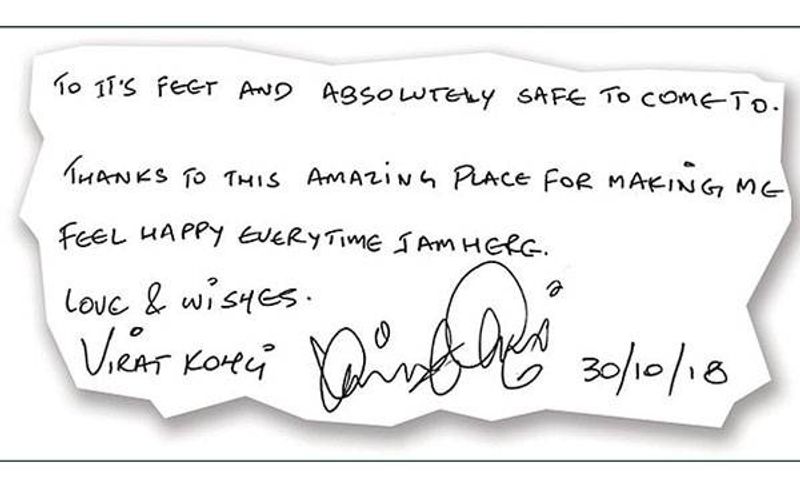 TO IT'S FEET AND ABSOLUTELY SAFE TO COME TO.
THANKS TO THIS AMAZING PLACE FOR MAKING ME
FEEL HAPPY EVERYTIME I AM HERE.
LOVE & WISHES.
VIRAT KOHLI 30/10/18